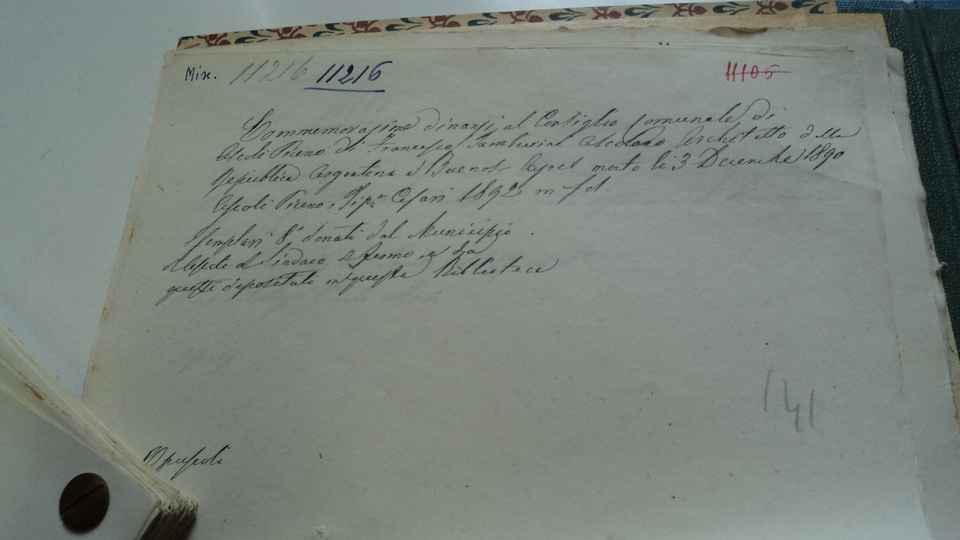 Mix. 11216 11216 11105
Commemorazione dinanzi al Consiglio Comunale di
Ascoli Piceno di Francesco Tamburini Ascolano Architetto della
Repubblica Argentina a Buenos Ayres morto li 3 Decembre 1890
Ascoli Piceno, Tip. Cesari 1892 in-fol
Esemplari 8 donati dal Municipio
al Sindaco di Fermo e da
questi depositati in queste Biblioteca
141
Opuscoli